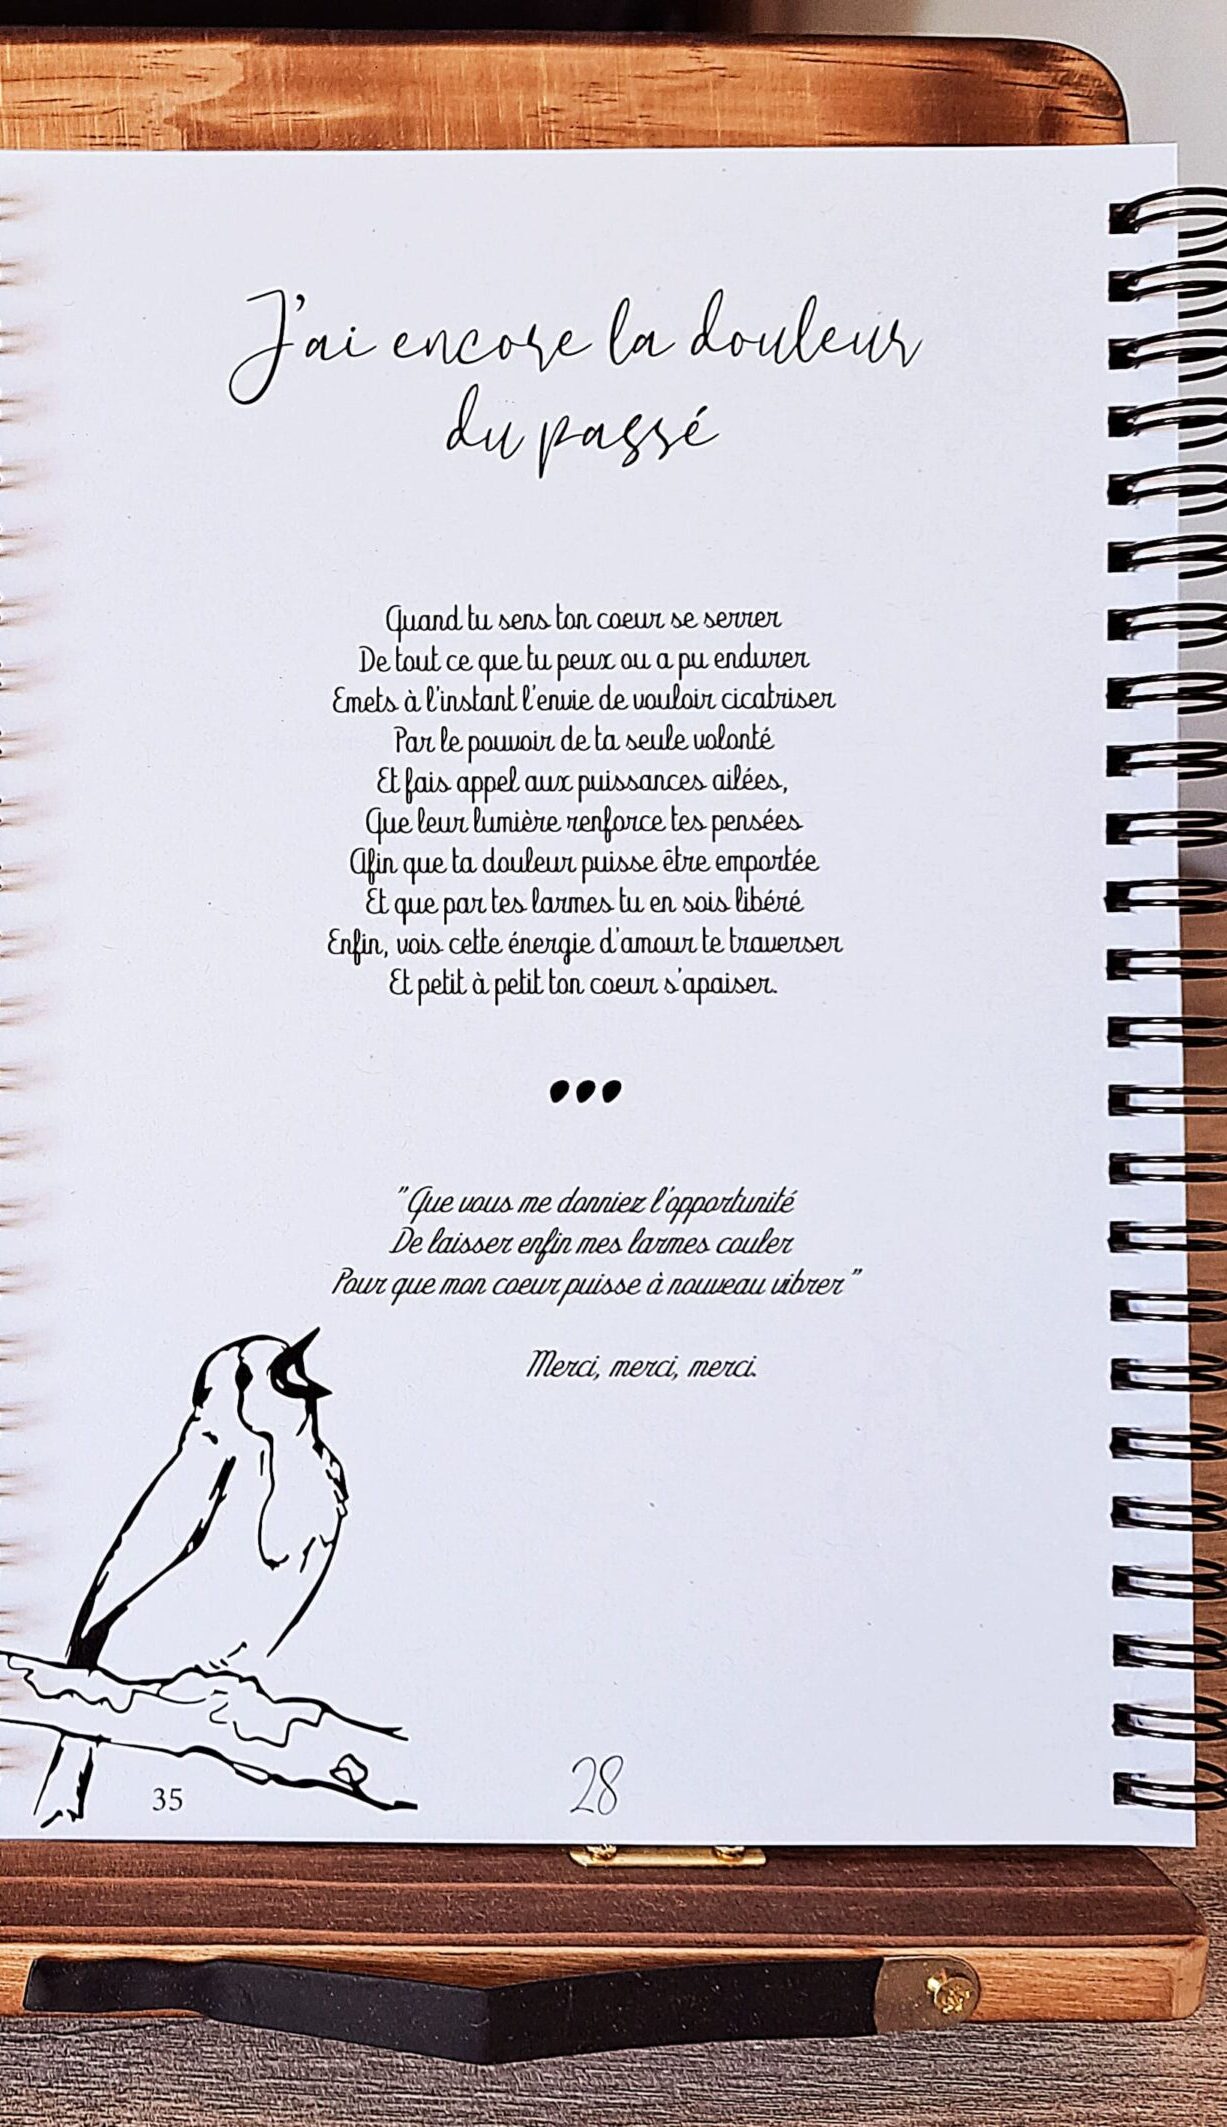 J'ai encore la douleur
du passé
Quand tu sens ton coeur se serrer
De tout ce que tu peux ou a pu endurer
Emets à l'instant l'envie de vouloir cicatriser
Par le pouvoir de ta seule volonté
Et fais appel aux puissances ailées,
Que leur lumière renforce tes pensées
Afin que ta douleur puisse être emportée
Et que par tes larmes tu en sois libéré
Enfin, vois cette énergie d'amour te traverser
Et petit à petit ton coeur s'apaiser.
"Que vous me donniez l'opportunité
De laisser enfin mes larmes couler
Pour que mon coeur puisse à nouveau vibrer"
Merci, merci, merci.
35
28